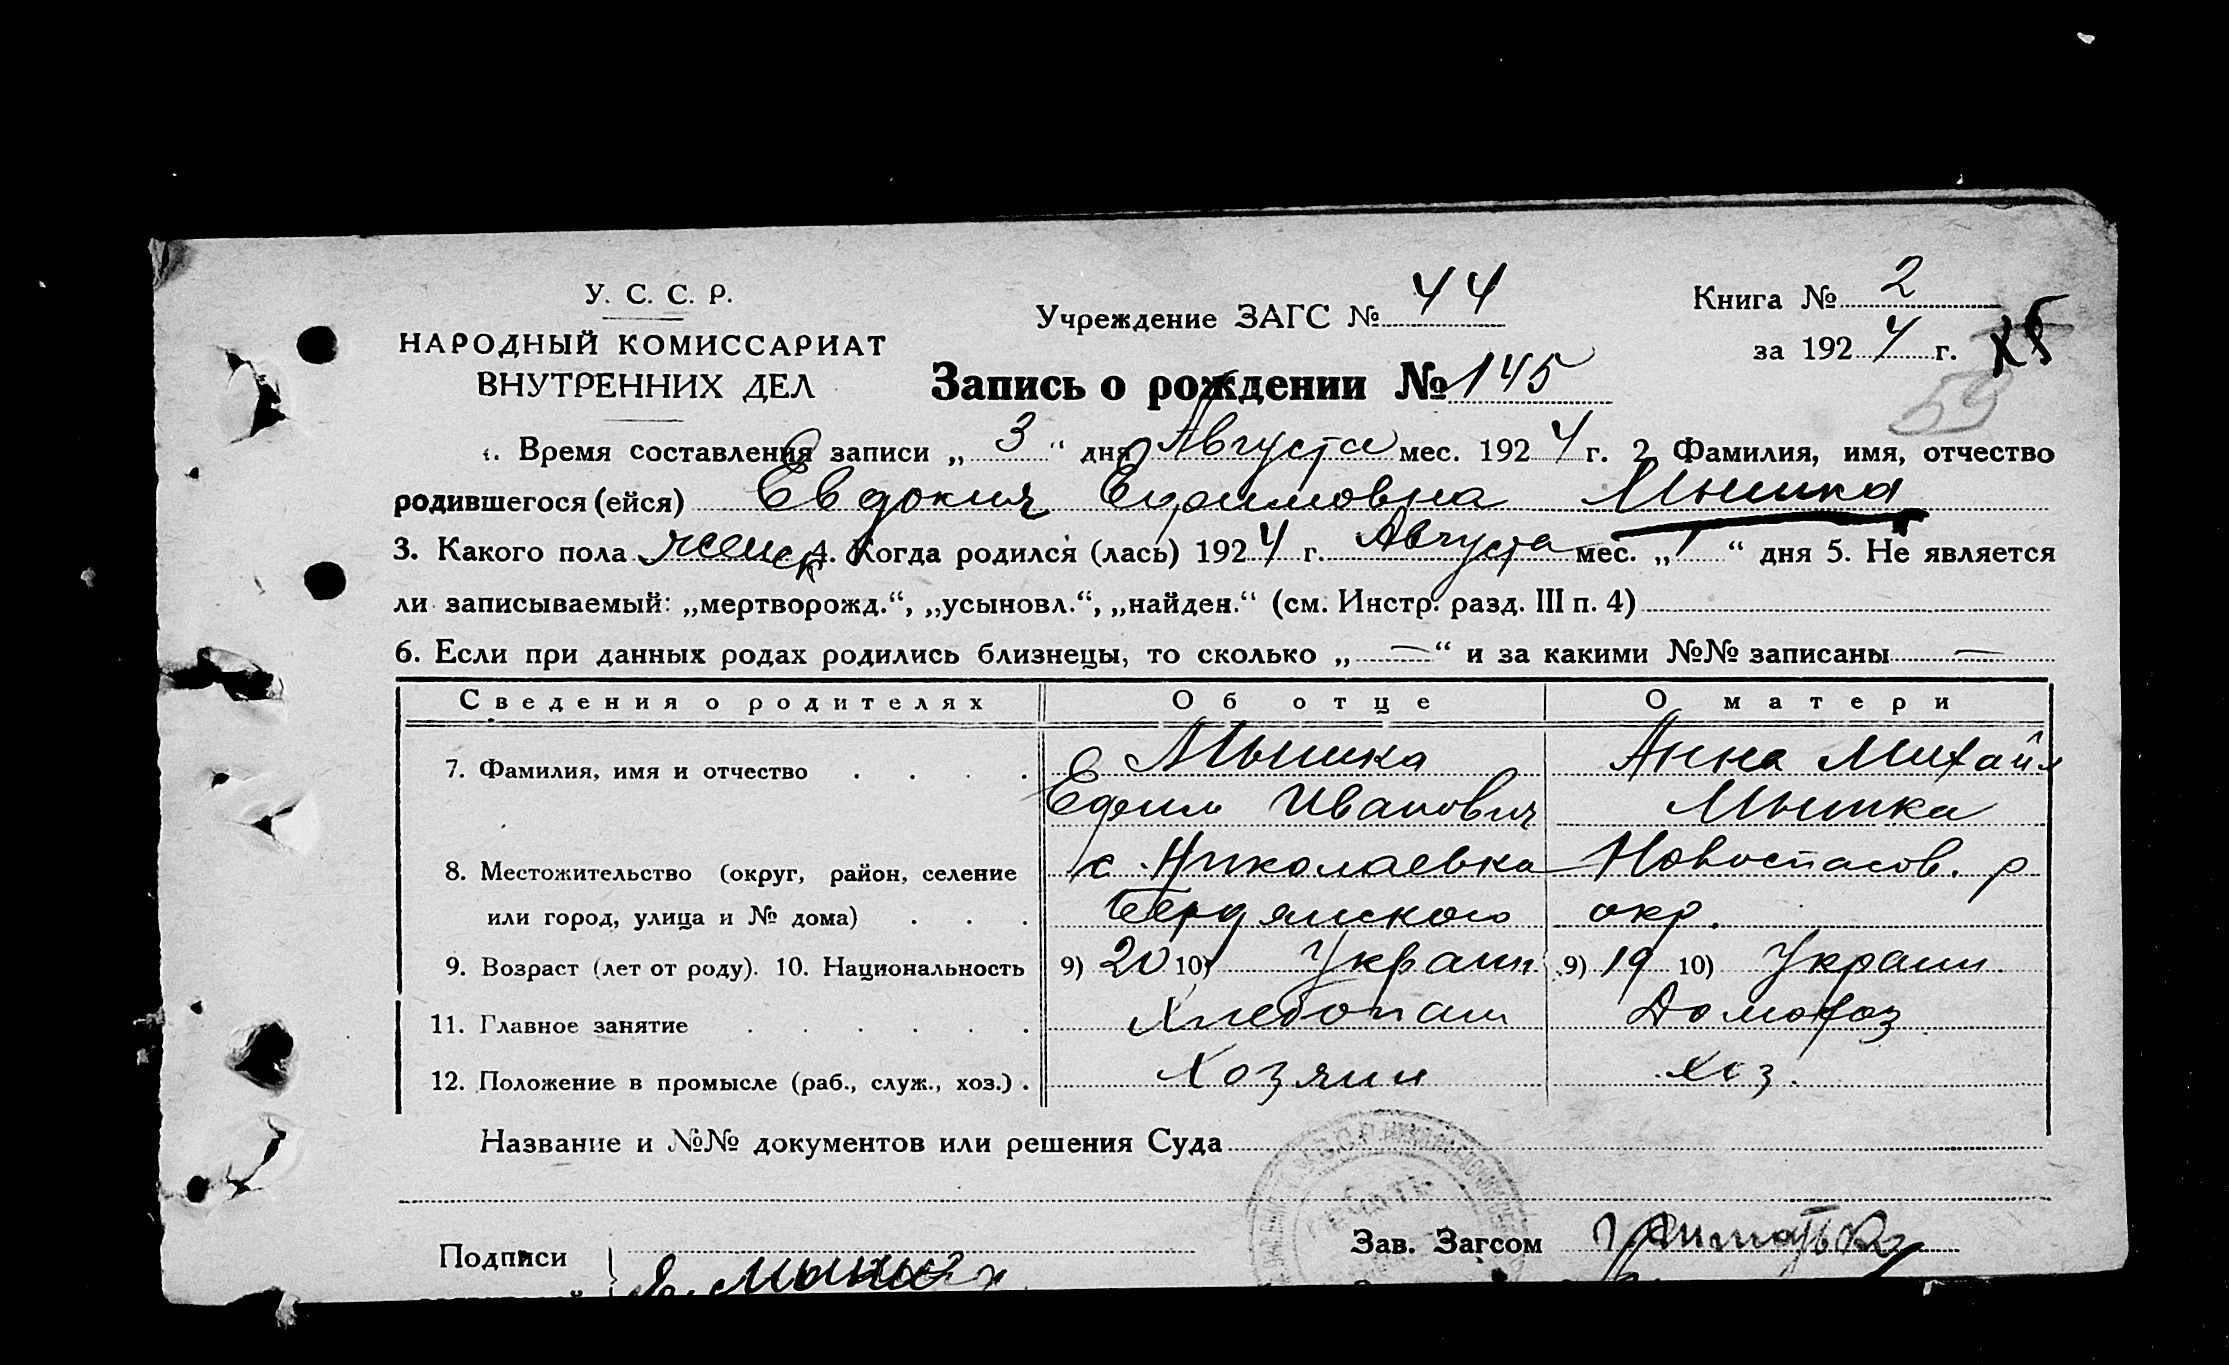 У. С. С. Р.
НАРОДНЫЙ КОМИССАРИАТ
ВНУТРЕННИХ ДЕЛ
Учреждение ЗАГС № 44
Книга № 2
за 1924 г.
59
Запись о рождении № 145
1. Время составления записи „3“ дня Августа мес. 1924 г. 2. Фамилия, имя, отчество
родившегося (ейся) Евдокия Ефимовна Мышка
3. Какого пола женск 4. Когда родился (лась) 1924 г. Августа мес. „1“ дня 5. Не является
ли записываемый: „мертворожд.“, „усыновл.“, „найден.“ (см. Инстр. разд. III п. 4)
6. Если при данных родах родились близнецы, то сколько „—“ и за какими №№ записаны —
Сведения о родителях Об отце О матери
7. Фамилия, имя и отчество Мышка Анна Михайл
Ефим Иванович Мышка
8. Местожительство (округ, район, селение с. Николаевка Новоспасов. р
или город, улица и № дома) Бердянского окр.
9. Возраст (лет от роду). 10. Национальность 9) 20 10) Украин 9) 19 10) Украин.
11. Главное занятие Хлебопаш Домохоз
12. Положение в промысле (раб., служ., хоз.) Хозяин хоз.
Название и №№ документов или решения Суда
Зав. Загсом
Подписи